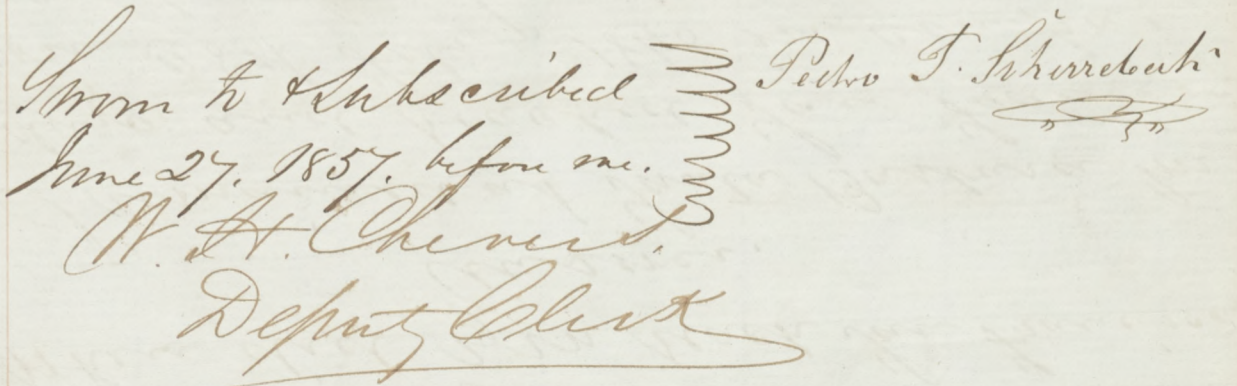 Sworn to & Subscribed
June 27, 1857, before me.
W. H. Chevers.
Deputy Clerk
Pedro T. Sherreback